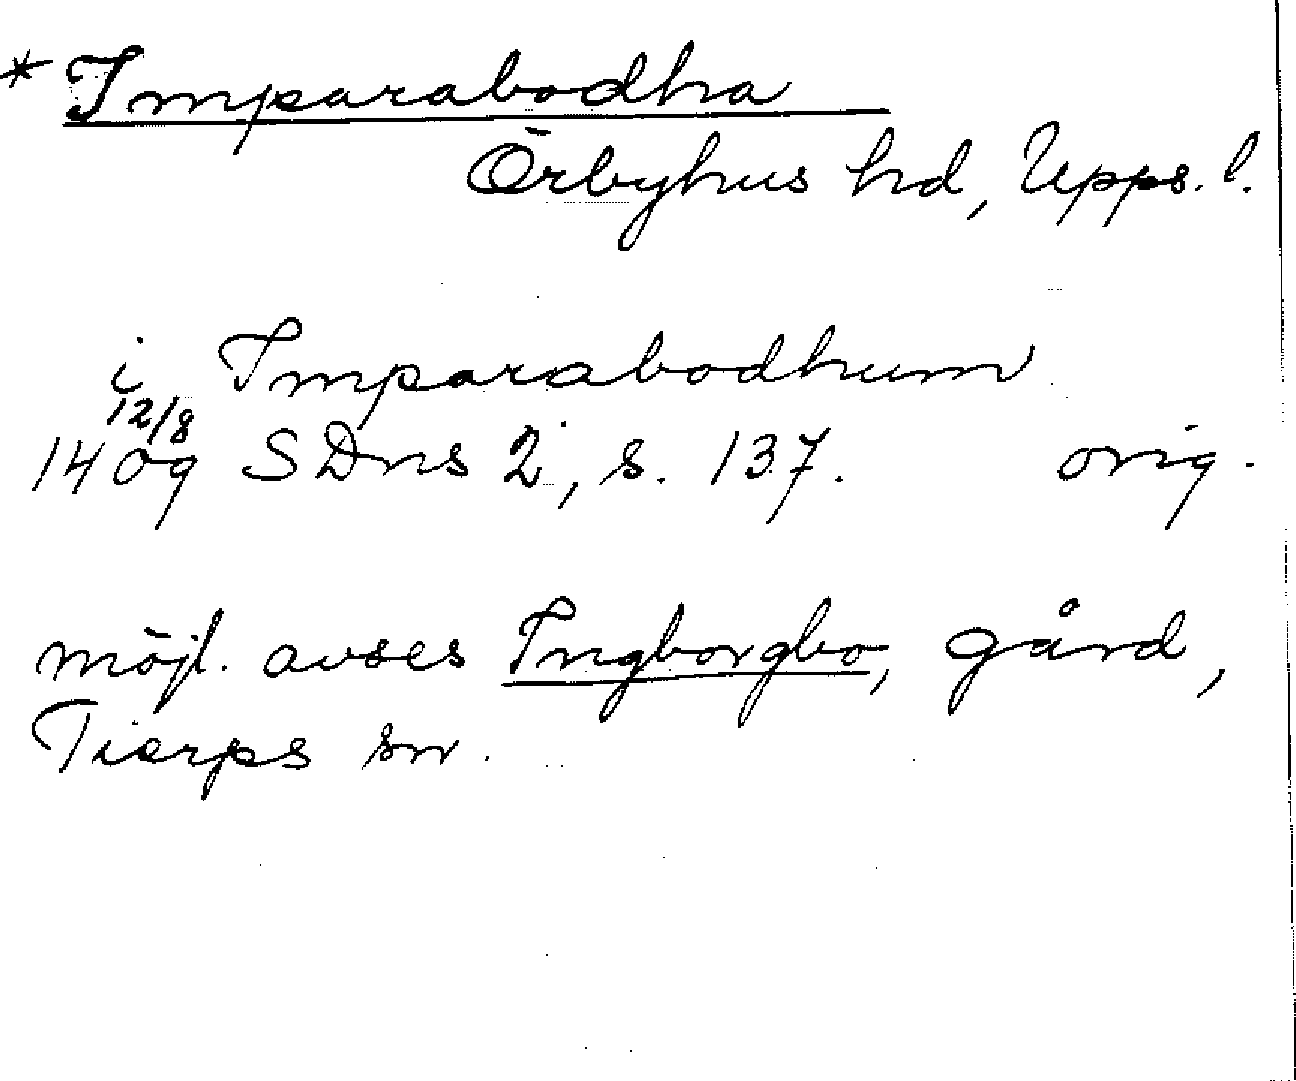 * Imparabodha
Örbyhus hd, Upps. l.
i Imparabodhum
12/8
1409 SDns 2, s. 137. orig.
möjl. avses Ingborgbo, gård,
Tierps sn.